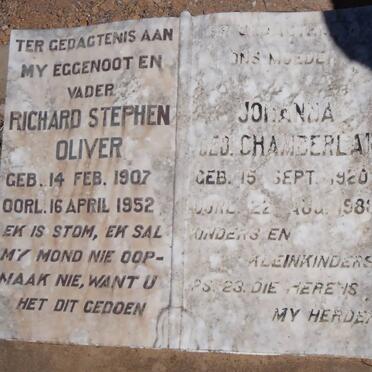 TER GEDAGTENIS AAN
MY EGGENOOT EN
VADER
RICHARD STEPHEN
OLIVER
GEB. 14 FEB. 1907
OORL. 16 APRIL 1952
EK IS STOM, EK SAL
MY MOND NIE OOP-
MAAK NIE, WANT U
HET DIT GEDOEN
ONS MOEDER
JOHANNA
GED. CHAMBERLAN
GEB. 15 SEPT. 1920
OORL. 22 AUG. 198
KINDERS EN
KLEINKINDERS
PS. 23. DIE HERE IS
MY HERDER